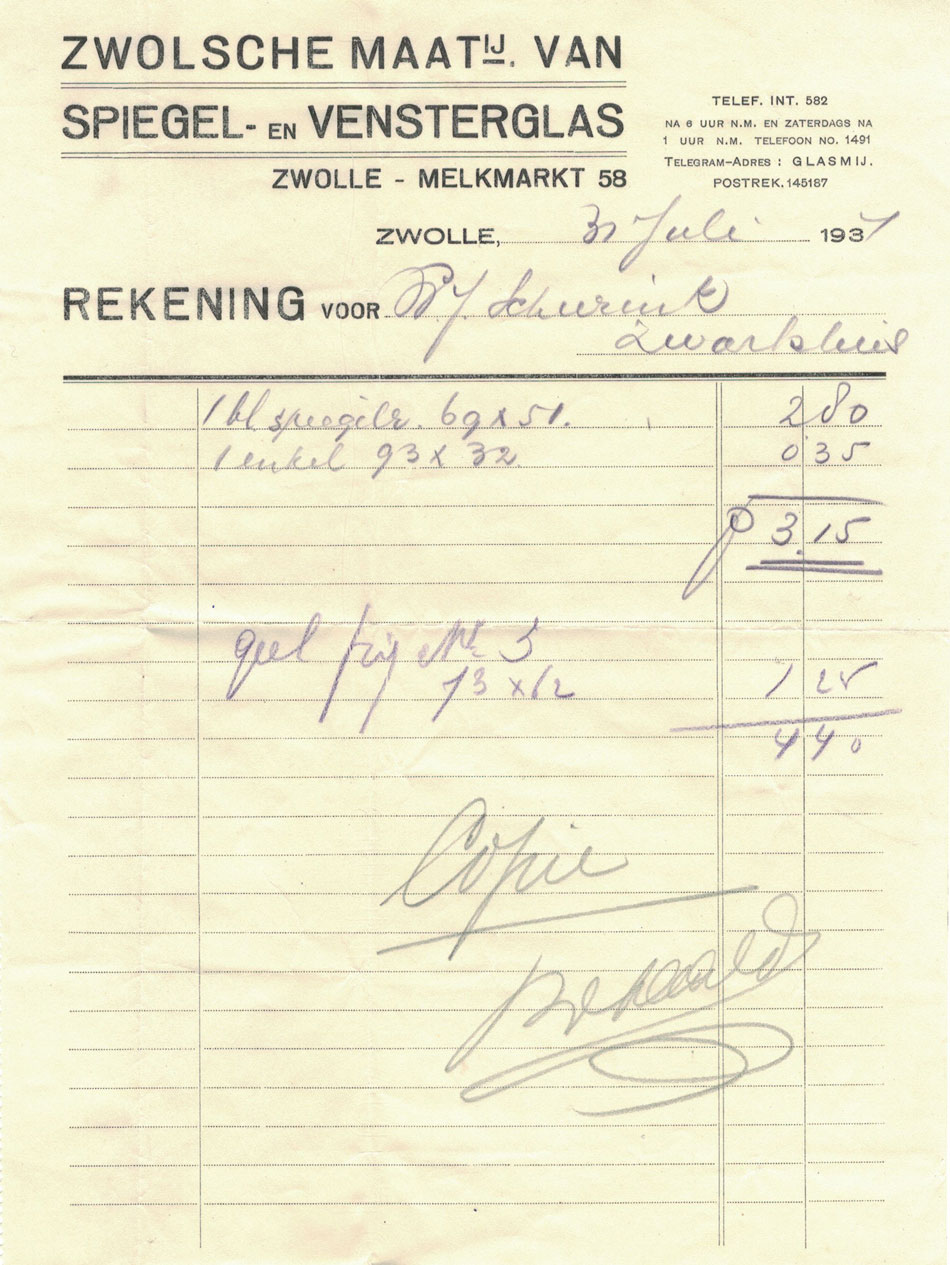 ZWOLSCHE MAATIJ. VAN
SPIEGEL- EN VENSTERGLAS
ZWOLLE - MELKMARKT 58
TELEF. INT. 582
NA 6 UUR N.M. EN ZATERDAGS NA
1 UUR N.M. TELEFOON NO. 1491
TELEGRAM-ADRES : GLASMIJ.
POSTREK. 145187
ZWOLLE, 31 Juli 1937
REKENING VOOR Schurink
1 bl. 69 x 51. 2 80
1 enkel 93 x 32 0 35
3.15
geel No 5
73 x 62 1 25
4 40
Copie
Betaald